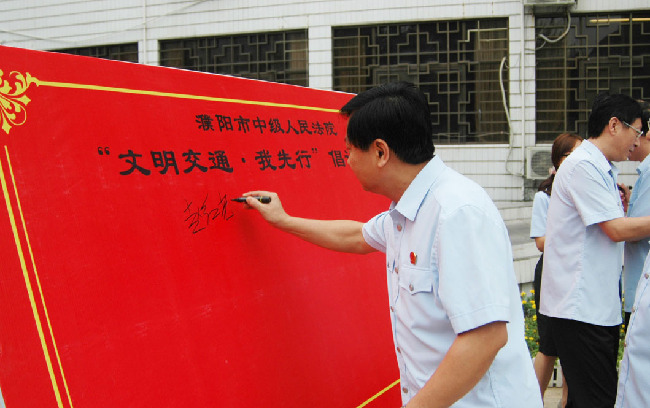 濮阳市中级人民法院
“文明交通·我先行”倡